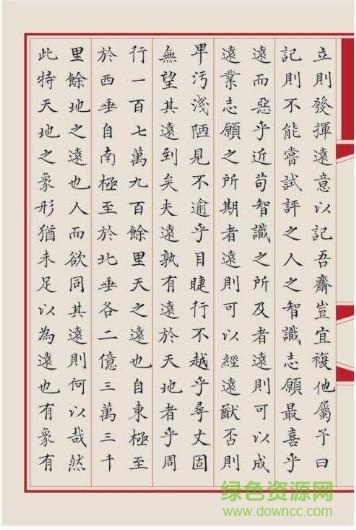 立則發揮遠意以記吾齋豈宜複他屬予曰
記則不能嘗試評之人之智識志願最喜乎
遠而惡乎近苟智識之所及者遠則可以成
遠業志願之所期者遠則可以經遠猷否則
畀汚淺陋見不逾乎目睫行不越乎尋丈固
無望其遠到矣夫遠孰有遠於天地者乎周
行一百七萬九百餘里天之遠也自東極至
於西垂自南極至於北垂各二億三萬三千
里餘地之遠也人而欲同其遠則何以哉然
此特天地之象形猶未足以為遠也有象有
绿色资源网
www.downcc.com